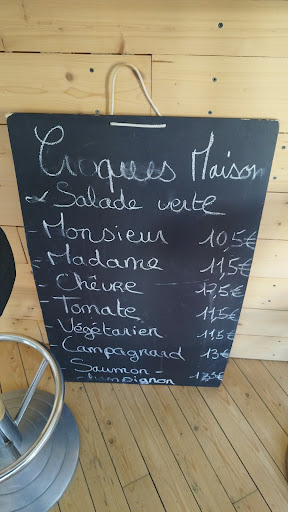 Croques Maison
Salade verte
- Monsieur 10,5€
- Madame 11,5€
- Chêvre 12,5€
- Tomate 11,5€
- Végétarien 11,5€
- Campagnard 13€
- Saumon -
- champignon 12,5€